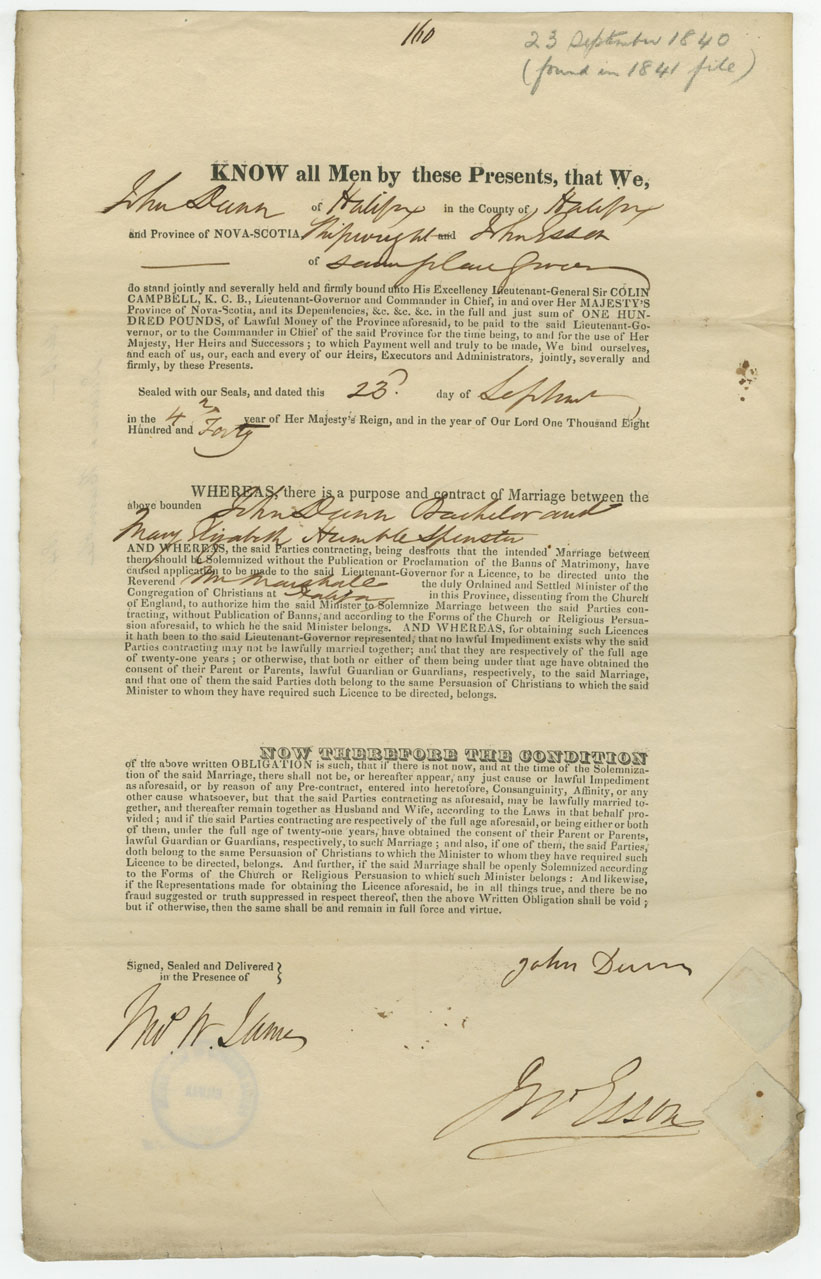 160
23 September 1840
(found in 1841 file)
KNOW all Men by these Presents, that We,
John Dunn of Halifax in the County of Halifax
and Province of NOVA-SCOTIA Shipwright and John Esson
of same place Grocer
do stand jointly and severally held and firmly bound unto His Excellency Lieutenant-General Sir COLIN
CAMPBELL, K. C. B., Lieutenant-Governor and Commander in Chief, in and over Her MAJESTY'S
Province of Nova-Scotia, and its Dependencies, &c. &c. &c. in the full and just sum of ONE HUN-
DRED POUNDS, of Lawful Money of the Province aforesaid, to be paid to the said Lieutenant-Go-
vernor, or to the Commander in Chief of the said Province for the time being, to and for the use of Her
Majesty, Her Heirs and Successors; to which Payment well and truly to be made, We bind ourselves,
and each of us, our, each and every of our Heirs, Executors and Administrators, jointly, severally and
firmly, by these Presents.
Sealed with our Seals, and dated this 23d. day of September
in the 4 year of Her Majesty's Reign, and in the year of Our Lord One Thousand Eight
Hundred and Forty
WHEREAS, there is a purpose and contract of Marriage between the
above bounden John Dunn Bachelor and
Mary Elizabeth Humble Spinster
AND WHEREAS, the said Parties contracting, being desirous that the intended Marriage between
them should be Solemnized without the Publication or Proclamation of the Banns of Matrimony, have
caused application to be made to the said Lieutenant-Governor for a Licence, to be directed unto the
Reverend Wm Marshall the duly Ordained and Settled Minister of the
Congregation of Christians at Halifax in this Province, dissenting from the Church
of England, to authorize him the said Minister to Solemnize Marriage between the said Parties con-
tracting, without Publication of Banns, and according to the Forms of the Church or Religious Persua-
sion aforesaid, to which he the said Minister belongs. AND WHEREAS, for obtaining such Licences
it hath been to the said Lieutenant-Governor represented, that no lawful Impediment exists why the said
Parties contracting may not be lawfully married together; and that they are respectively of the full age
of twenty-one years; or otherwise, that both or either of them being under that age have obtained the
consent of their Parent or Parents, lawful Guardian or Guardians, respectively, to the said Marriage,
and that one of them the said Parties doth belong to the same Persuasion of Christians to which the said
Minister to whom they have required such Licence to be directed, belongs.
NOW THEREFORE THE CONDITION
of the above written OBLIGATION is such, that if there is not now, and at the time of the Solemniza-
tion of the said Marriage, there shall not be, or hereafter appear, any just cause or lawful Impediment
as aforesaid, or by reason of any Pre-contract, entered into heretofore, Consanguinity, Affinity, or any
other cause whatsoever, but that the said Parties contracting as aforesaid, may be lawfully married to-
gether, and thereafter remain together as Husband and Wife, according to the Laws in that behalf pro-
vided; and if the said Parties contracting are respectively of the full age aforesaid, or being either or both
of them, under the full age of twenty-one years, have obtained the consent of their Parent or Parents,
lawful Guardian or Guardians, respectively, to such Marriage; and also, if one of them, the said Parties,
doth belong to the same Persuasion of Christians to which the Minister to whom they have required such
Licence to be directed, belongs. And further, if the said Marriage shall be openly Solemnized according
to the Forms of the Church or Religious Persuasion to which such Minister belongs: And likewise,
if the Representations made for obtaining the Licence aforesaid, be in all things true, and there be no
fraud suggested or truth suppressed in respect thereof, then the above Written Obligation shall be void;
but if otherwise, then the same shall be and remain in full force and virtue.
Signed, Sealed and Delivered
in the Presence of
John Dunn
Thos. W. James
Jno Esson